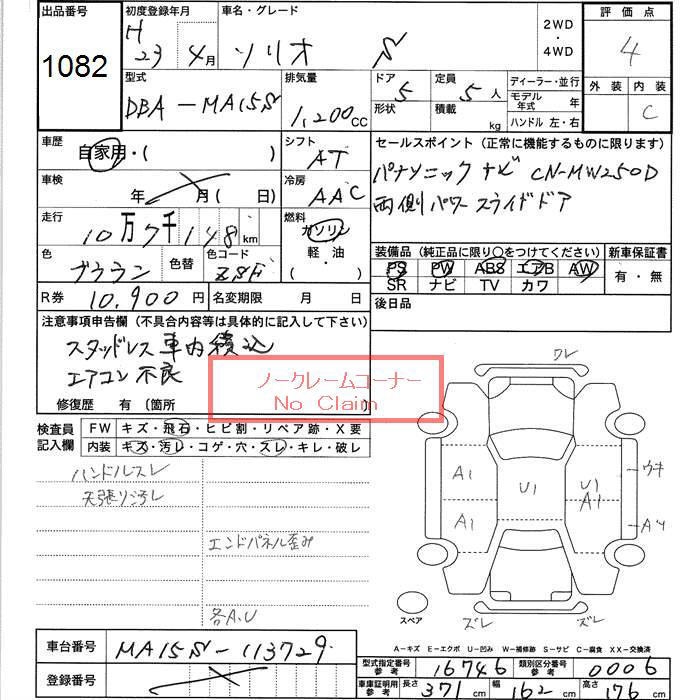 出品番号
1082
初度登録年月
H 23 年 4月
車名・グレード
ソリオ S
2WD
・
4WD
評価点
4
外装 内装
C
型式
DBA-MA15S
排気量
1,200cc
ドア 5
形状
定員 5人
積載 kg
ディーラー・並行
モデル年式 年
ハンドル 左・右
車歴
自家用・( )
シフト
AT
車検
年 月 ( 日)
冷房
AAC
走行
10万7千148km
燃料
ガソリン
軽・油
・( )
色
ブラウン
色替
色コード
R券 10,900円
名変期限 月 日
セールスポイント (正常に機能するものに限ります)
パナソニック ナビ CN-MW250D
両側パワースライドドア
装備品 (純正品に限り○をつけてください)
新車保証書
PS PW ABS エアB AW
SR ナビ TV カワ
有・無
後日品
注意事項申告欄 (不具合内容等は具体的に記入して下さい)
スタッドレス 車内積込
エアコン不良
修復歴 有 〔箇所
ノークレームコーナー
No Claim
検査員
記入欄
FW キズ・飛石・ヒビ割・リペア跡・X要
内装 キズ・汚レ・コゲ・穴・スレ・キレ・破レ
ハンドルスレ
天張り汚レ
エンドパネル歪み
各A,U
ワレ
A1
U1
U1
A1
ウキ
A1
スペア
ズレ
ズレ
A-キズ E-エクボ U-凹み W-補修跡 S-サビ C-腐食 XX-交換済
車台番号
MA15S-113729
登録番号
型式指定番号
参考
16746
類別区分番号
参考
0006
車庫証明用
参考
長さ 371cm
幅 162cm
高さ 176cm